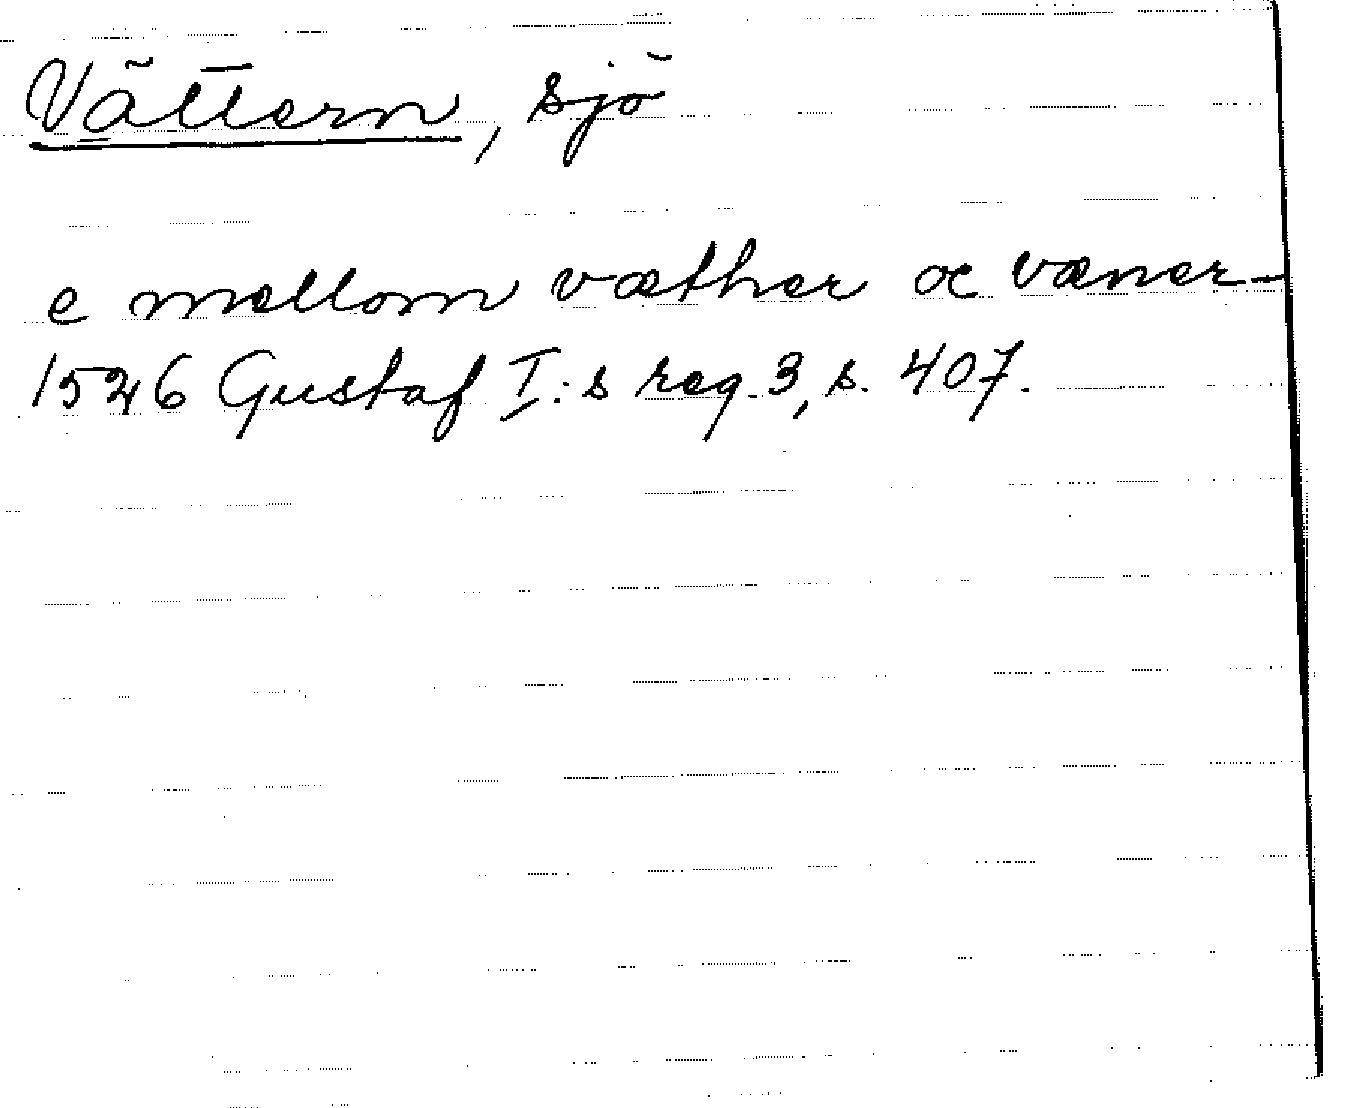 Vättern, sjö
e mellom væther oc væner-
1526 Gustaf I:s reg. 3, s. 407.